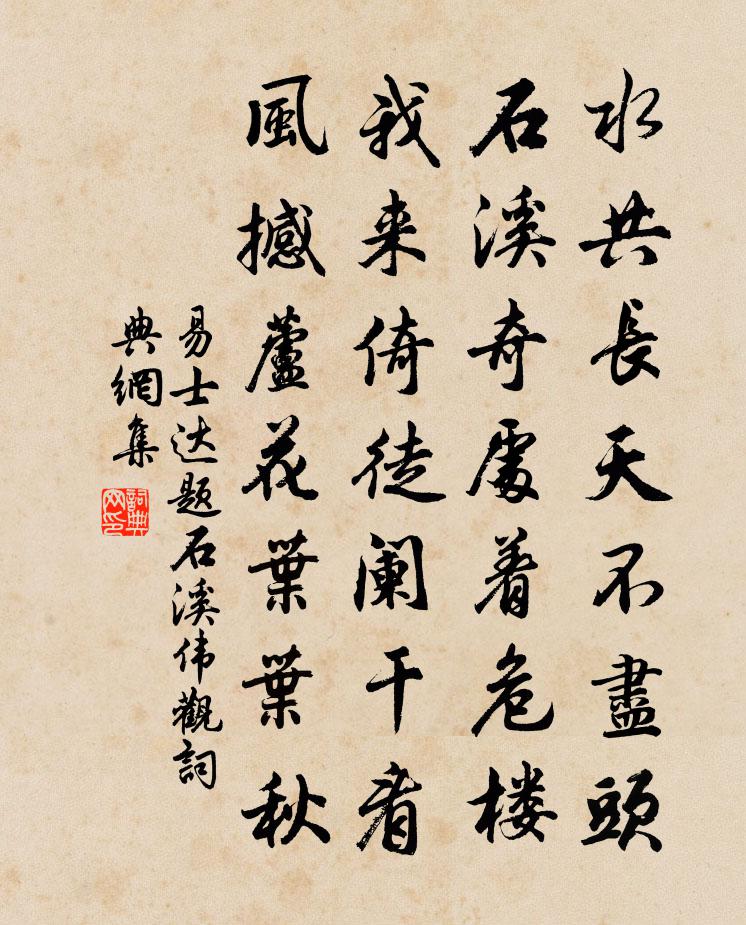 水共長天不盡頭
石溪奇處着危楼
我来倚徒阑干看
風撼蘆花葉葉秋
易士达题石溪伟觀詞
典網集
詞典
网印